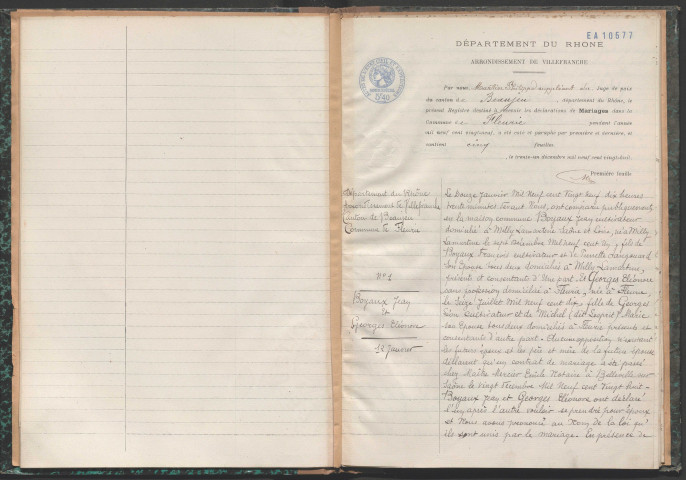 EA10577
DÉPARTEMENT DU RHONE
ARRONDISSEMENT DE VILLEFRANCHE
Par nous suppléant du Juge de paix
du canton de Beaujeu, département du Rhône, le
présent Registre destiné à recevoir les déclarations de Mariages dans la
Commune de Fleurie pendant l'année
mil neuf cent vingt-neuf, a été coté et paraphé par première et dernière, et
contient cinq feuilles.
, le trente-un décembre mil neuf cent vingt-huit.
Première feuille
Département du Rhône
Arrondissement de Villefranche
Canton de Beaujeu
Commune de Fleurie
N° 1
Boyaux Jean
et
Georges Eléonore
12 Janvier
Le douze Janvier Mil Neuf cent Vingt Neuf dix heures
trente minutes devant Nous, ont comparu publiquement
en la maison commune Boyaux Jean cultivateur
domicilié à Milly Lamartine Saône et Loire, né à Milly
Lamartine le sept Décembre Mil neuf cent , fils de
Boyaux François cultivateur et de Pierrette
son épouse tous deux domiciliés à Milly Lamartine,
présents et consentants d'Une part. Et Georges Eléonore
sans profession domiciliée à Fleurie, née à Fleurie
le Seize Juillet Mil Neuf cent dix, fille de Georges
cultivateur et de Michel (dit Lespret) Marie
son épouse tous deux domiciliés à Fleurie présents et
consentants d'autre part. Aucune opposition n'existant
les futurs époux et les père et mère de la future épouse
déclarent qu'un contrat de mariage a été passé
chez Maître Mercier Notaire à Belleville sur
Saône le vingt Décembre Mil Neuf cent Vingt huit.
Boyaux Jean et Georges Eléonore ont déclaré
l'Un après l'autre vouloir se prendre pour époux
et Nous avons prononcé au Nom de la loi qu'
ils sont unis par le mariage. En présence de